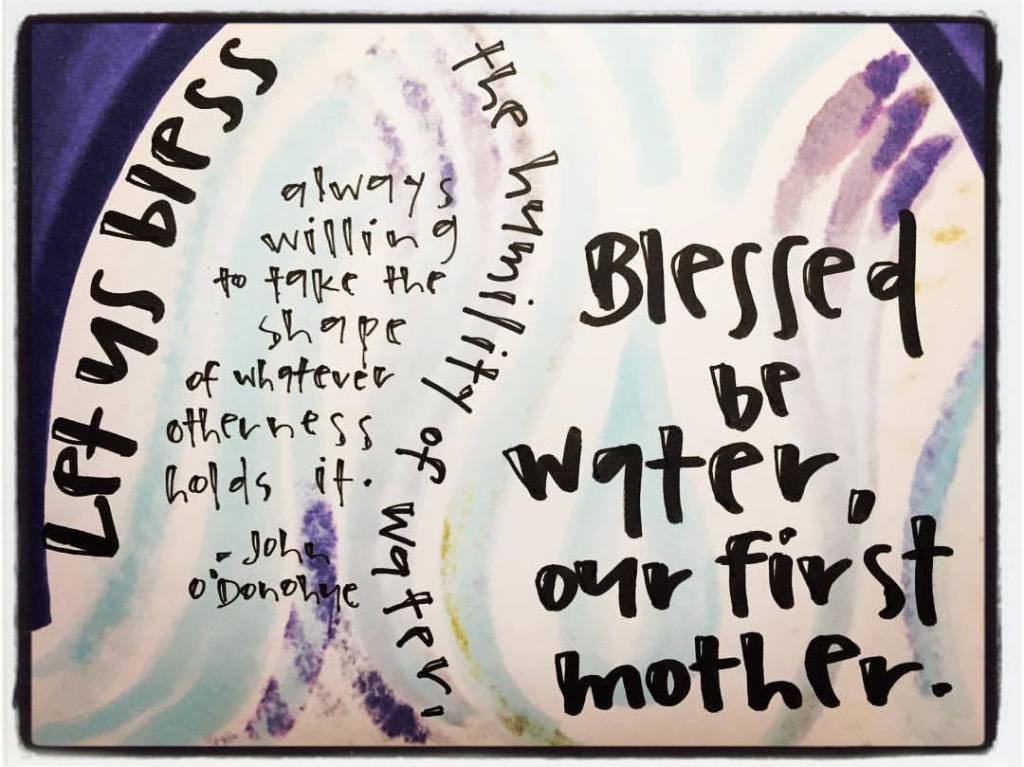 Let us bless
the humility of water,
always
willing
to take the
shape
of whatever
otherness
holds it.
- John
O'Donohue
Blessed
be
water,
our first
mother.